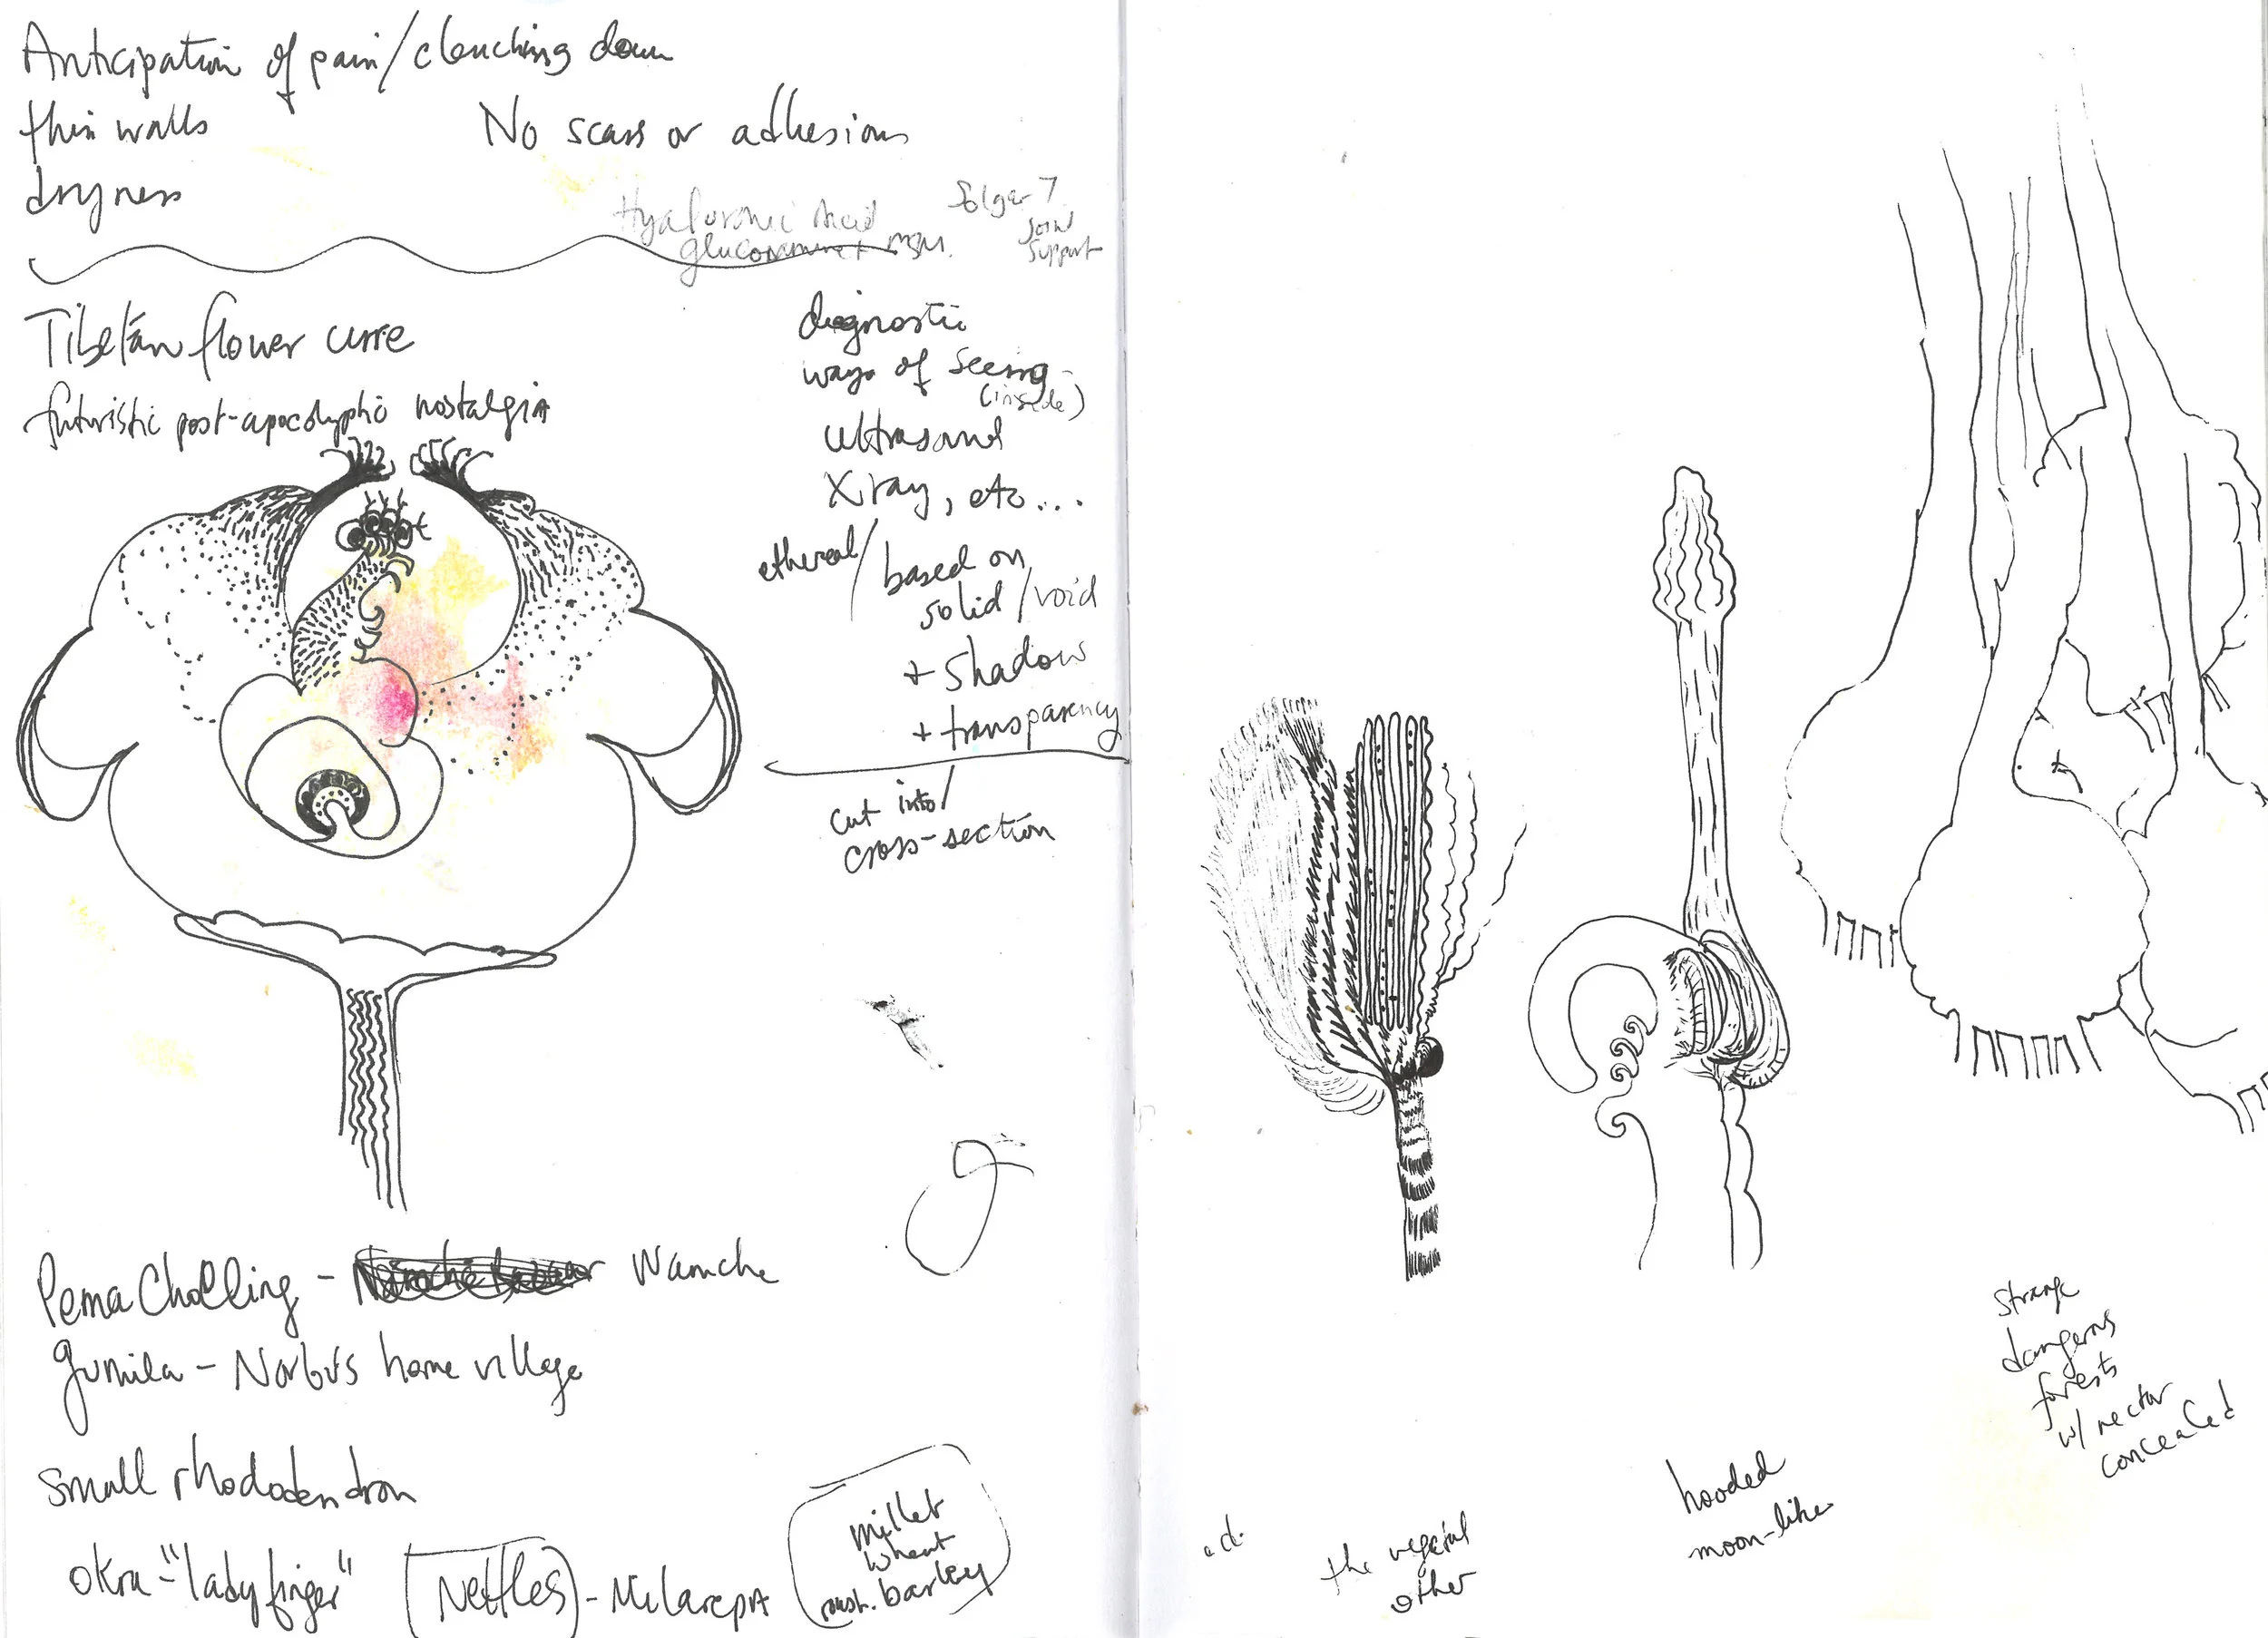 Anticipation of pain/clenching down
thin walls
No scars or adhesions
dryness
Hyaluronic Acid
glucosamine + MSM.
Solgar 7
Joint
Support
Tibetan flower cure
futuristic post-apocalyptic nostalgia
diagnostic
ways of seeing
(inside)
ultrasound
X ray, etc...
ethereal/
based on
solid/void
+ shadow
+ transparency
cut into/
cross-section
Pema Cholling - Wamche
Gumila - Norbu's home village
small rhododendron
okra - "lady finger"
Nettles - Milarepa
millet
wheat
barley
the vegetal
other
hooded
moon-like
strange
dangerous
forests
w/ nectar
concealed